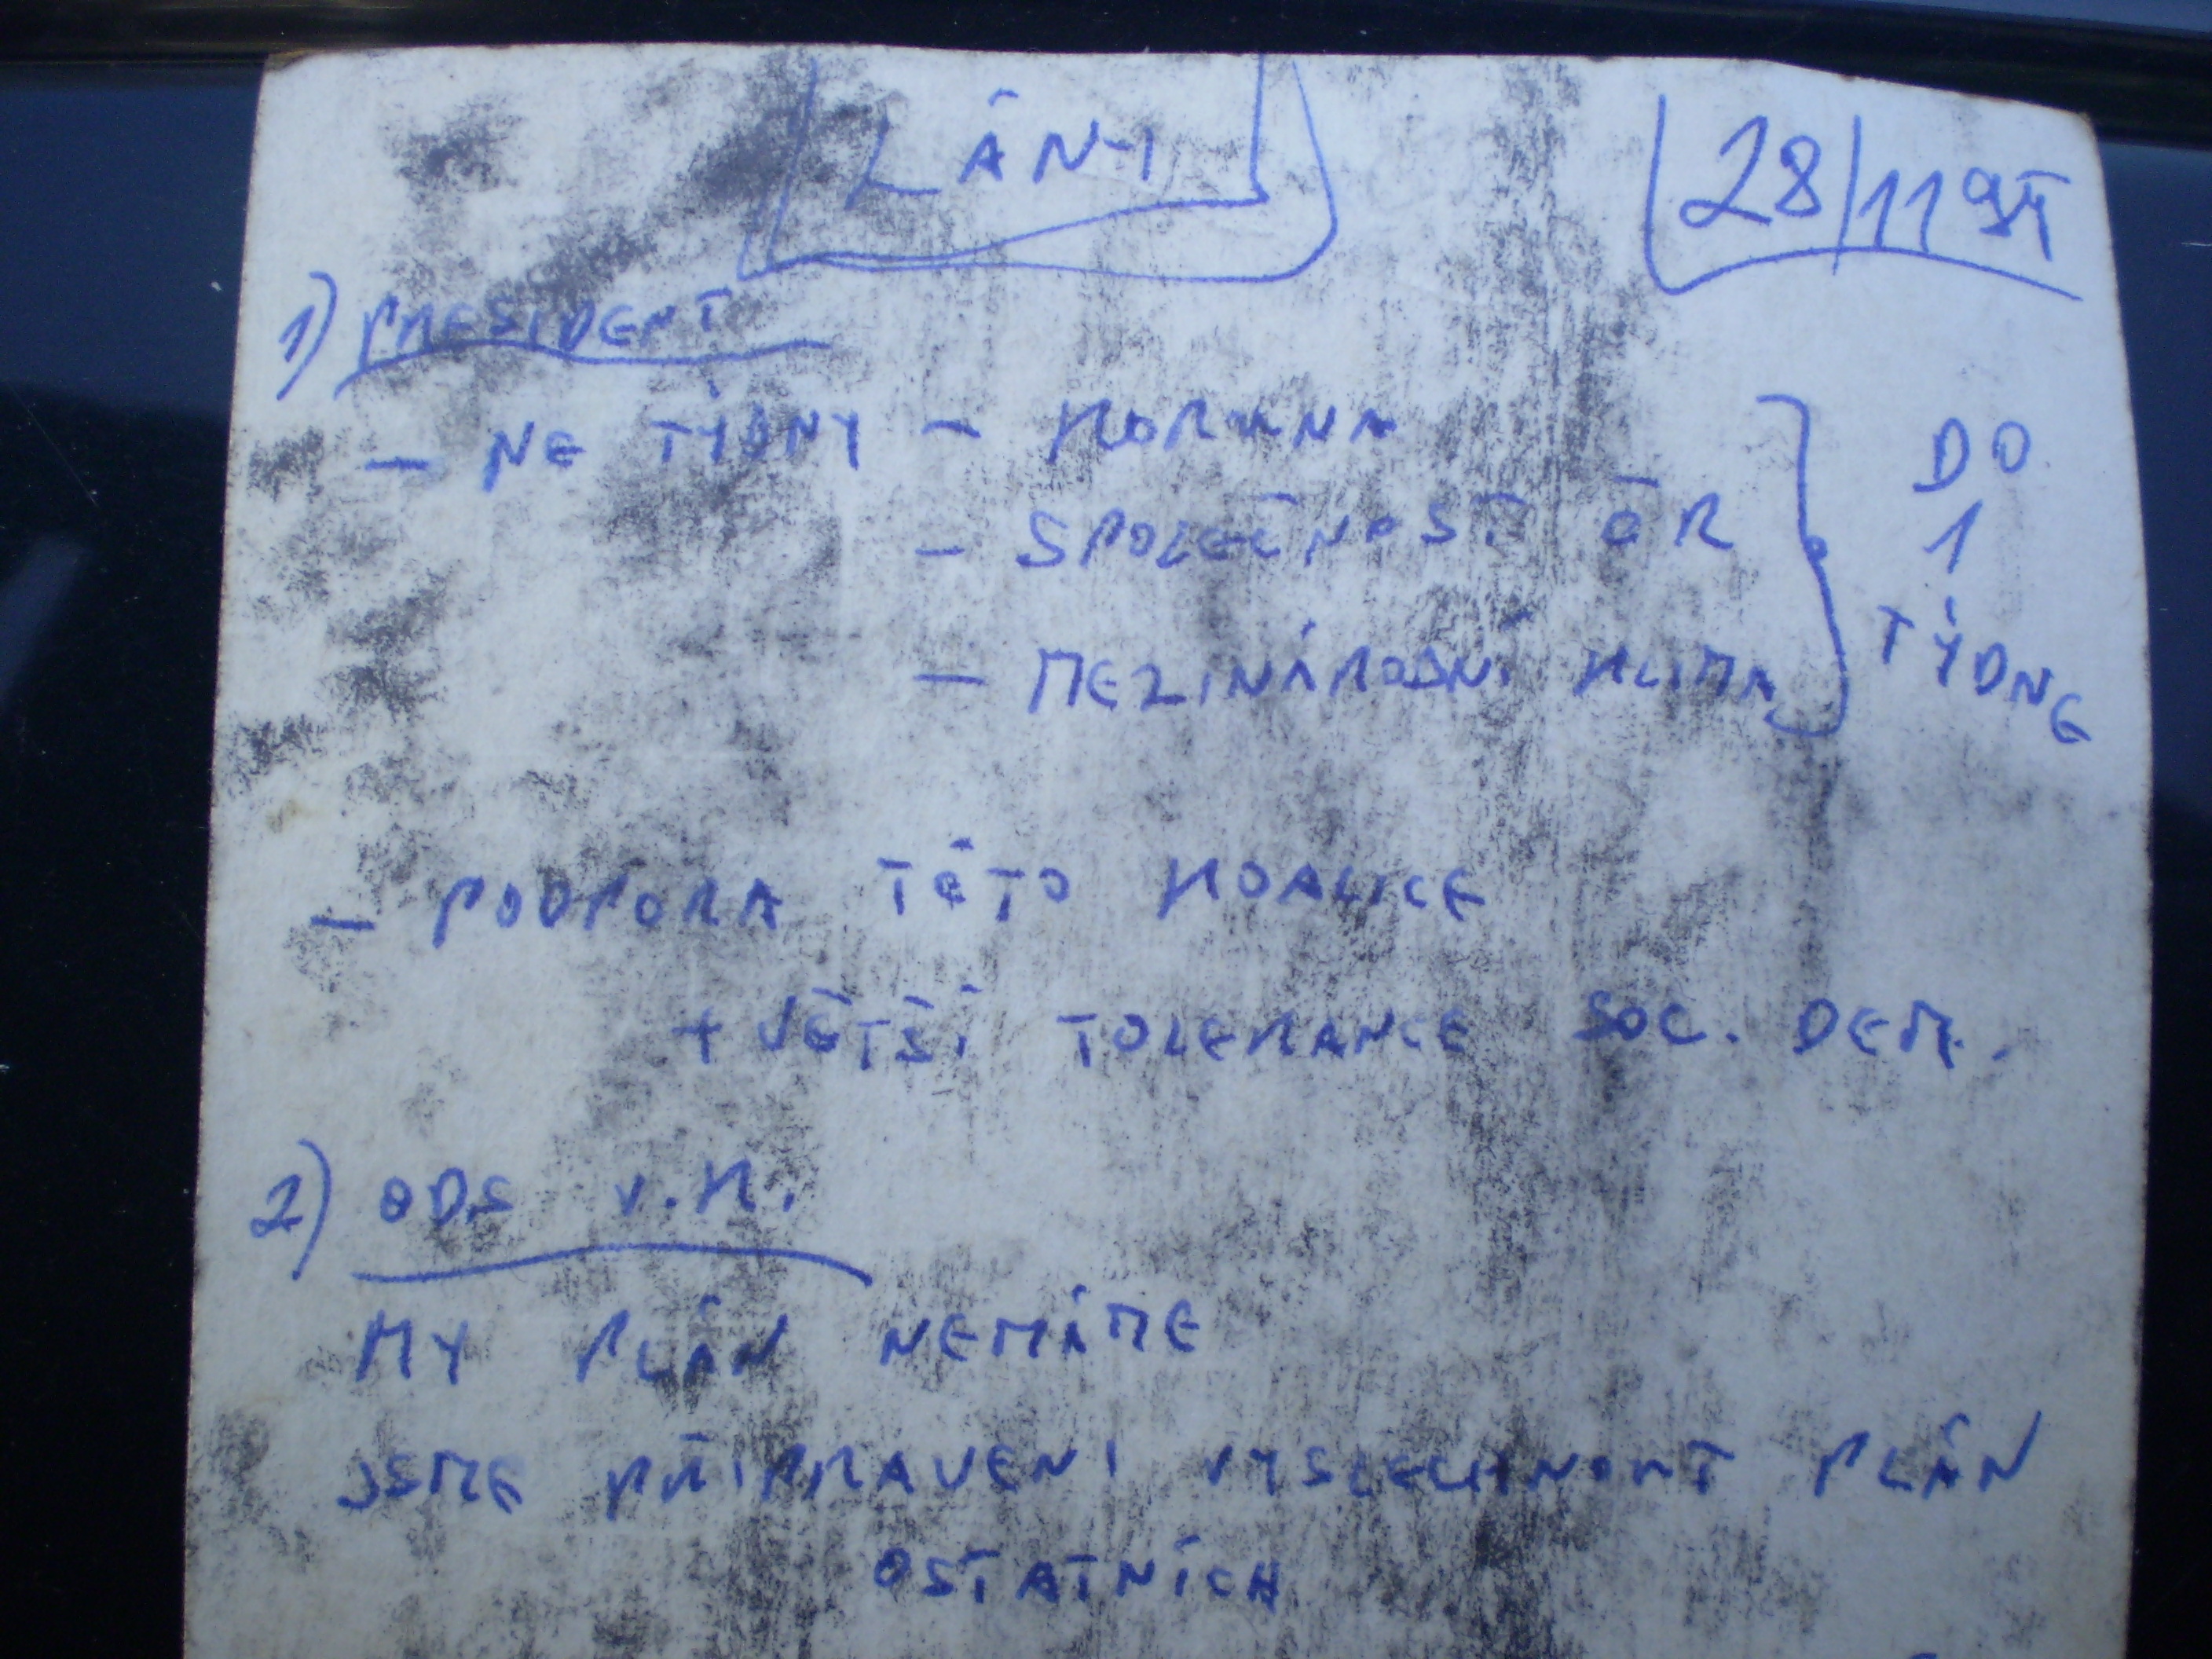 LÁNY
28/11 97
1) PRESIDENT
- NE TÝDNY - KORUNA
- SPOLEČNOST ČR
- MEZINÁRODNÍ KLIMA
DO
1
TÝDNE
- PODPORA TÉTO KOALICE
+ VĚTŠÍ TOLERANCE SOC. DEM.
2) ODS V.K.
MY PLÁN NEMÁME
JSME PŘIPRAVENI VYSLECHNOUT PLÁN
OSTATNÍCH